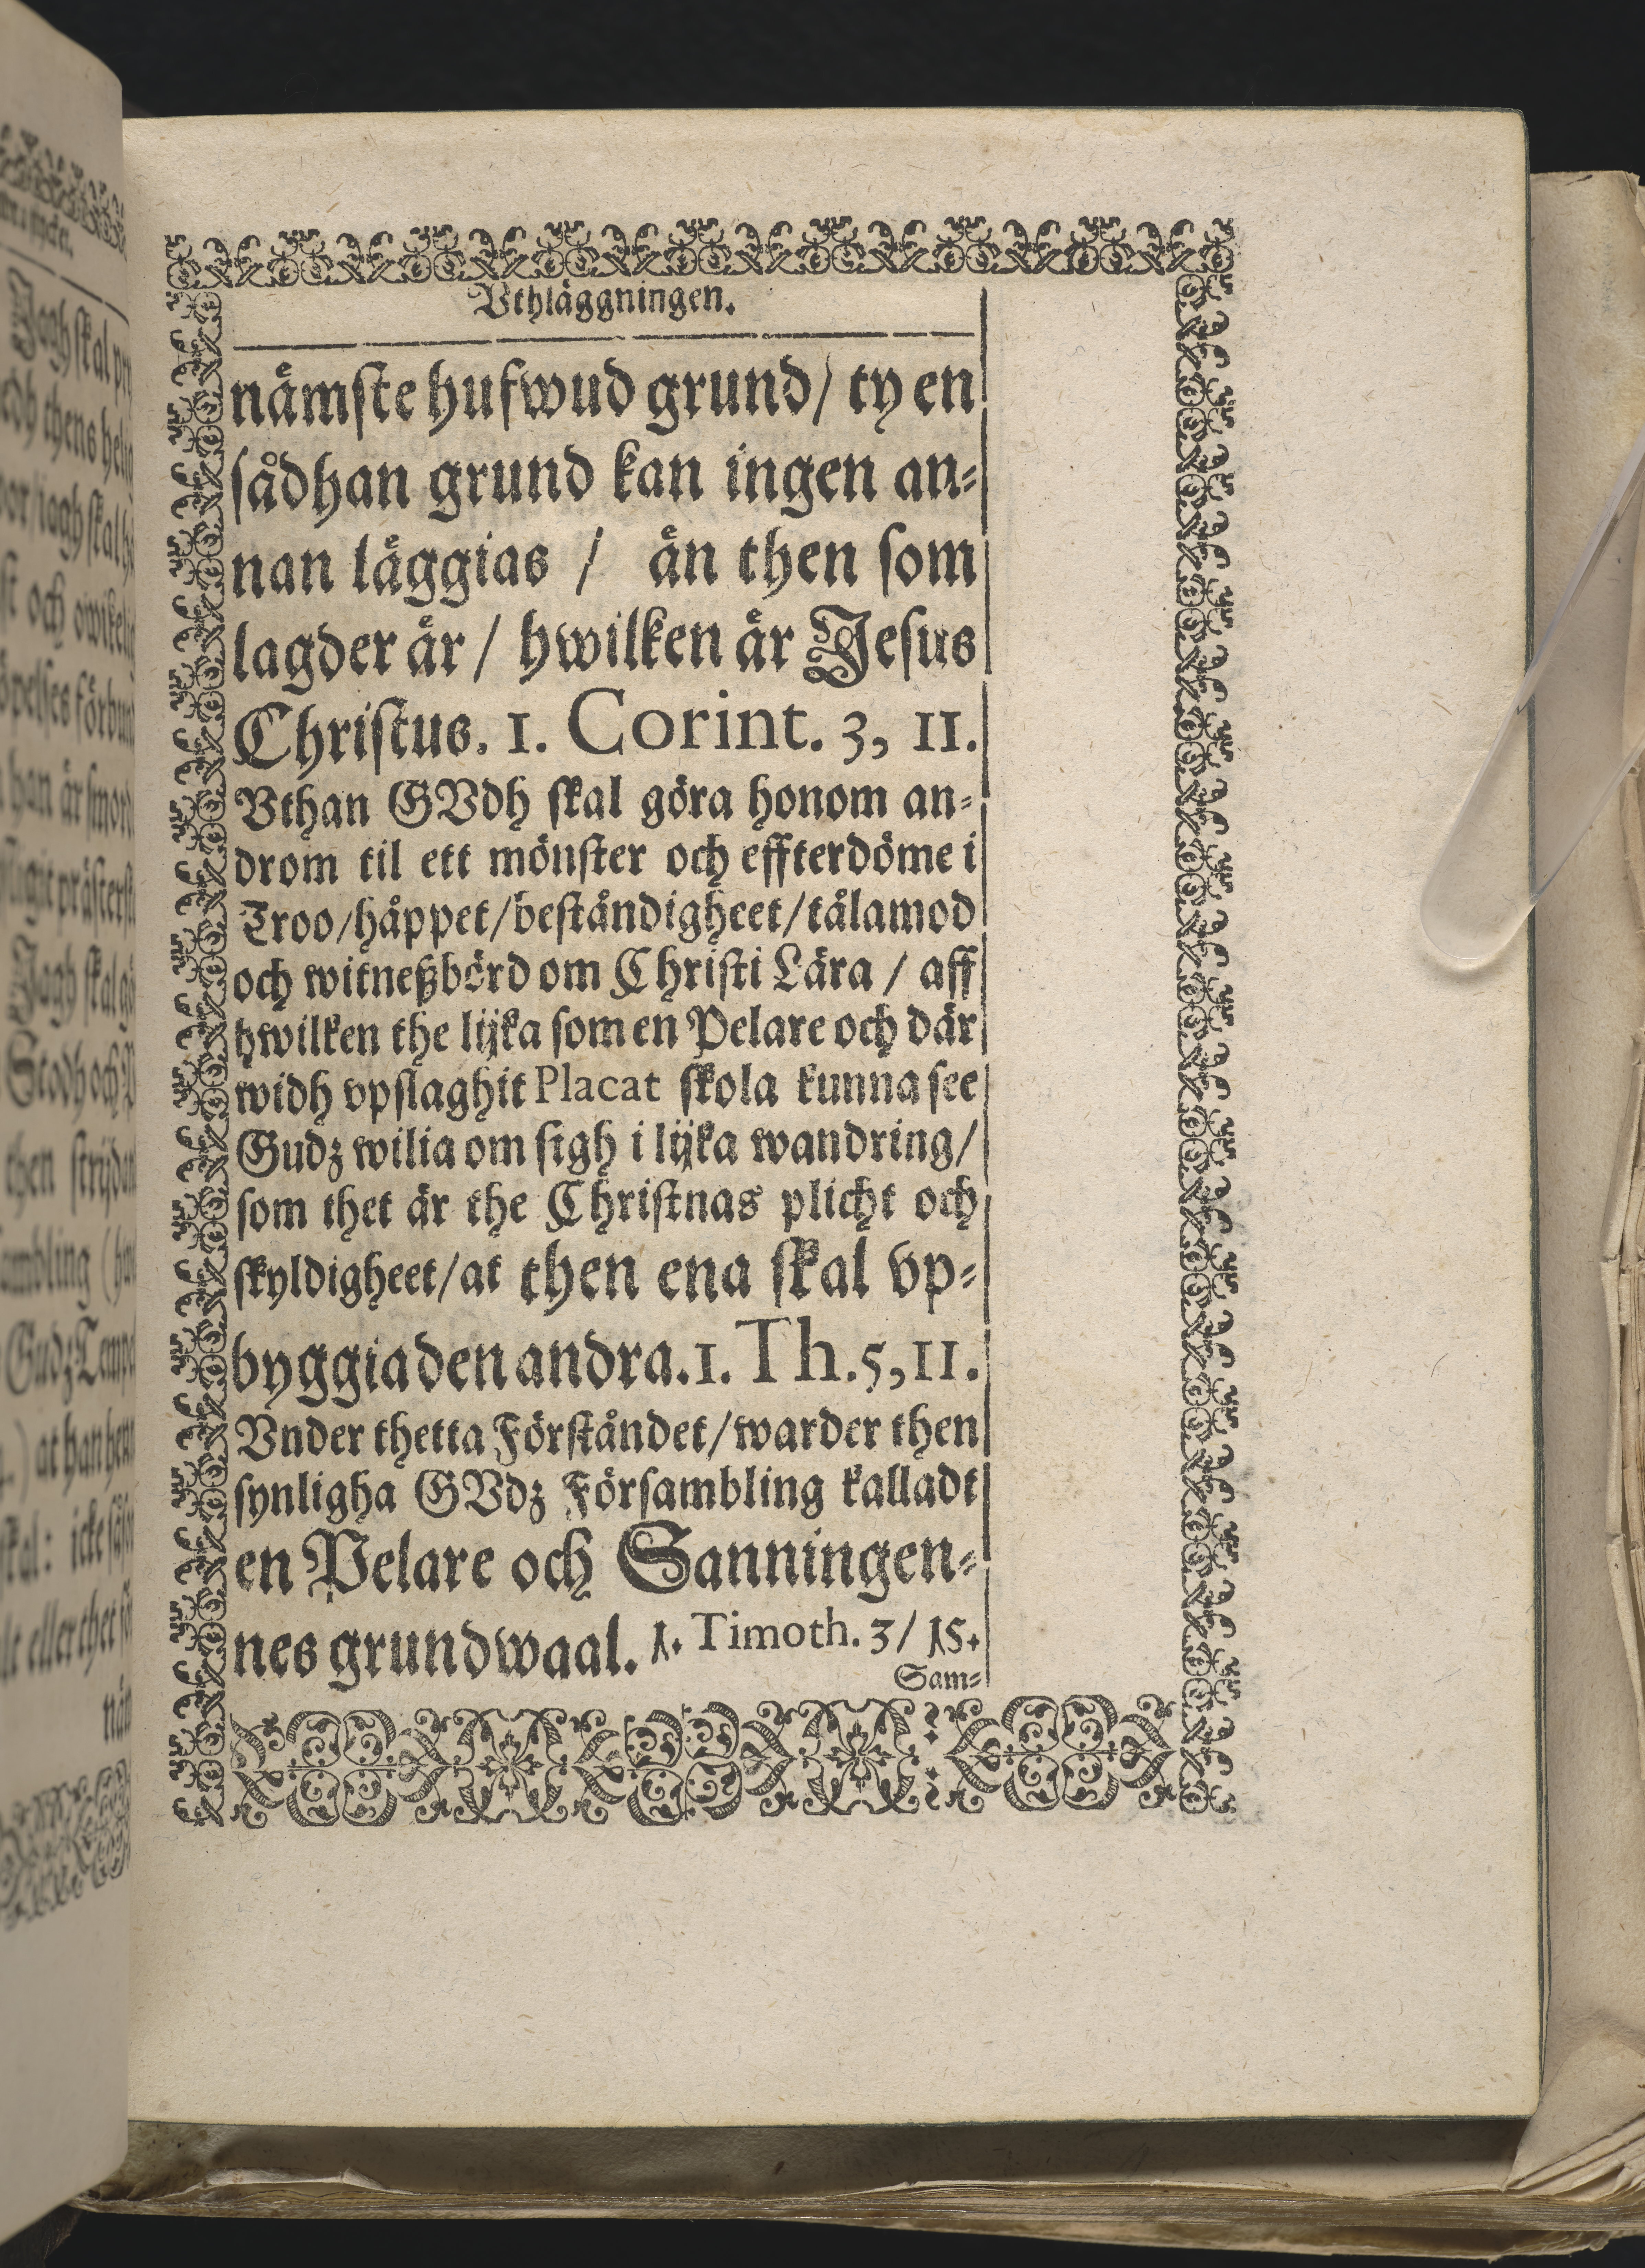 Vthläggningen.
nämste hufwud grund/ ty en
sådhan grund kan ingen an-
nan läggias / än then som
lagder är / hwilken är Jesus
Christus. 1. Corint. 3, 11.
Vthan GVdh skal göra honom an-
drom til ett mönster och effterdöme i
Troo/håppet/beständigheet/tålamod
och witneßbörd om Christi Lära / aff
hwilken the lijka som en Pelare och där
widh vpslaghit Placat skola kunna see
Gudz wilia om sigh i lijka wandring/
som thet är the Christnas plicht och
skyldigheet/at then ena skal vp-
byggia den andra. 1. Th. 5, 11.
Vnder thetta Förståndet/warder then
synligha GVdz Försambling kalladt
en Pelare och Sanningen-
nes grundwaal. 1. Timoth. 3/ 15.
Sam-